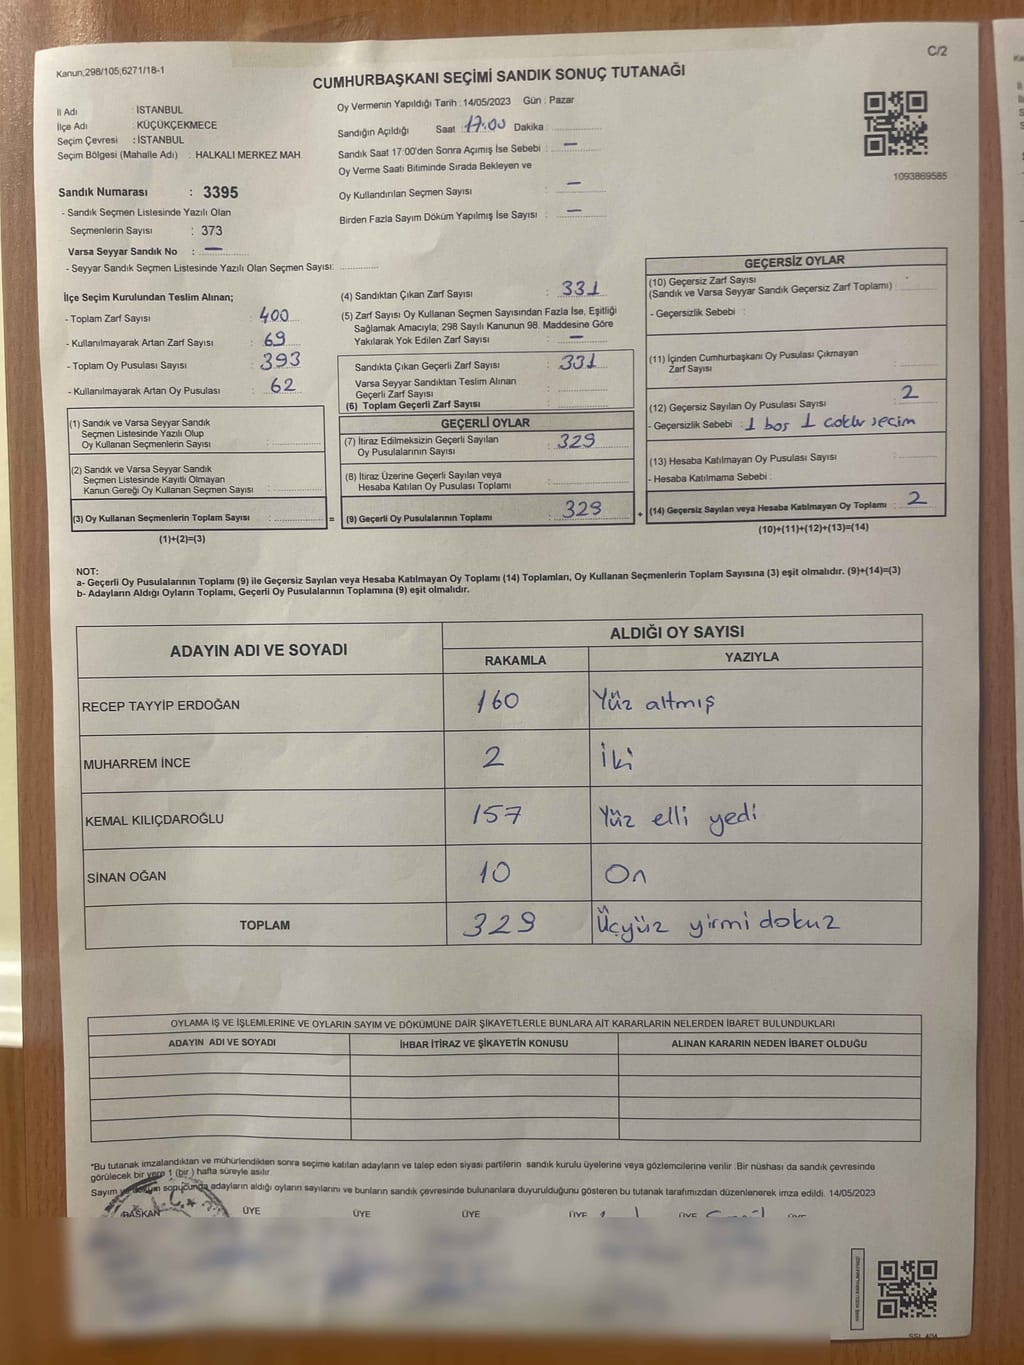 C/2
Kanun;298/105;6271/18-1
CUMHURBAŞKANI SEÇİMİ SANDIK SONUÇ TUTANAĞI
İl Adı : İSTANBUL
İlçe Adı : KÜÇÜKÇEKMECE
Seçim Çevresi : İSTANBUL
Seçim Bölgesi (Mahalle Adı) : HALKALI MERKEZ MAH.
Sandık Numarası : 3395
- Sandık Seçmen Listesinde Yazılı Olan
Seçmenlerin Sayısı : 373
Varsa Seyyar Sandık No : —
- Seyyar Sandık Seçmen Listesinde Yazılı Olan Seçmen Sayısı:
Oy Vermenin Yapıldığı Tarih :14/05/2023 Gün : Pazar
Sandığın Açıldığı Saat :17:00 Dakika :
Sandık Saat 17:00'den Sonra Açımış İse Sebebi : —
Oy Verme Saati Bitiminde Sırada Bekleyen ve
Oy Kullandırılan Seçmen Sayısı : —
Birden Fazla Sayım Döküm Yapılmış İse Sayısı : —
1093869585
İlçe Seçim Kurulundan Teslim Alınan;
- Toplam Zarf Sayısı : 400
- Kullanılmayarak Artan Zarf Sayısı : 69
- Toplam Oy Pusulası Sayısı : 393
- Kullanılmayarak Artan Oy Pusulası : 62
(1) Sandık ve Varsa Seyyar Sandık
Seçmen Listesinde Yazılı Olup
Oy Kullanan Seçmenlerin Sayısı :
(2) Sandık ve Varsa Seyyar Sandık
Seçmen Listesinde Kayıtlı Olmayan
Kanun Gereği Oy Kullanan Seçmen Sayısı :
(3) Oy Kullanan Seçmenlerin Toplam Sayısı : =
(1)+(2)=(3)
(4) Sandıktan Çıkan Zarf Sayısı : 331
(5) Zarf Sayısı Oy Kullanan Seçmen Sayısından Fazla İse, Eşitliği
Sağlamak Amacıyla, 298 Sayılı Kanunun 98. Maddesine Göre
Yakılarak Yok Edilen Zarf Sayısı : —
Sandıkta Çıkan Geçerli Zarf Sayısı : 331
Varsa Seyyar Sandıktan Teslim Alınan
Geçerli Zarf Sayısı :
(6) Toplam Geçerli Zarf Sayısı :
GEÇERLİ OYLAR
(7) İtiraz Edilmeksizin Geçerli Sayılan : 329
Oy Pusulalarının Sayısı
(8) İtiraz Üzerine Geçerli Sayılan veya
Hesaba Katılan Oy Pusulası Toplamı :
(9) Geçerli Oy Pusulalarının Toplamı : 329 +
GEÇERSİZ OYLAR
(10) Geçersiz Zarf Sayısı
(Sandık ve Varsa Seyyar Sandık Geçersiz Zarf Toplamı) :
- Geçersizlik Sebebi :
(11) İçinden Cumhurbaşkanı Oy Pusulası Çıkmayan
Zarf Sayısı :
(12) Geçersiz Sayılan Oy Pusulası Sayısı : 2
- Geçersizlik Sebebi : 1 boş 1 coklu secim
(13) Hesaba Katılmayan Oy Pusulası Sayısı :
- Hesaba Katılmama Sebebi :
(14) Geçersiz Sayılan veya Hesaba Katılmayan Oy Toplamı : 2
(10)+(11)+(12)+(13)=(14)
NOT:
a- Geçerli Oy Pusulalarının Toplamı (9) ile Geçersiz Sayılan veya Hesaba Katılmayan Oy Toplamı (14) Toplamları, Oy Kullanan Seçmenlerin Toplam Sayısına (3) eşit olmalıdır. (9)+(14)=(3)
b- Adayların Aldığı Oyların Toplamı, Geçerli Oy Pusulalarının Toplamına (9) eşit olmalıdır.
ADAYIN ADI VE SOYADI ALDIĞI OY SAYISI
RAKAMLA YAZIYLA
RECEP TAYYİP ERDOĞAN 160 Yüz altmış
MUHARREM İNCE 2 İki
KEMAL KILIÇDAROĞLU 157 Yüz elli yedi
SİNAN OĞAN 10 On
TOPLAM 329 Üçyüz yirmi dokuz
OYLAMA İŞ VE İŞLEMLERİNE VE OYLARIN SAYIM VE DÖKÜMÜNE DAİR ŞİKAYETLERLE BUNLARA AİT KARARLARIN NELERDEN İBARET BULUNDUKLARI
ADAYIN ADI VE SOYADI İHBAR İTİRAZ VE ŞİKAYETİN KONUSU ALINAN KARARIN NEDEN İBARET OLDUĞU
*Bu tutanak imzalandıktan ve mühürlendikten sonra seçime katılan adayların ve talep eden siyasi partilerin sandık kurulu üyelerine veya gözlemcilerine verilir .Bir nüshası da sandık çevresinde
görülecek bir yere 1 (bir ) hafta süreyle asılır.
Sayım ve döküm sonucunda adayların aldığı oyların sayılarını ve bunların sandık çevresinde bulunanlara duyurulduğunu gösteren bu tutanak tarafımızdan düzenlenerek imza edildi. 14/05/2023
BAŞKAN ÜYE ÜYE ÜYE ÜYE ÜYE ÜYE